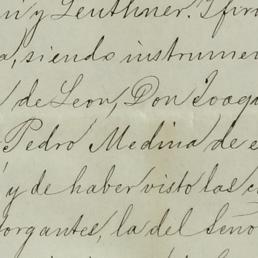 y Leuthner. I fir
a, siendo instrumen
de Leon, Don Joaqu
Pedro Medina de e
y de haber visto las c
organtes, la del Seño